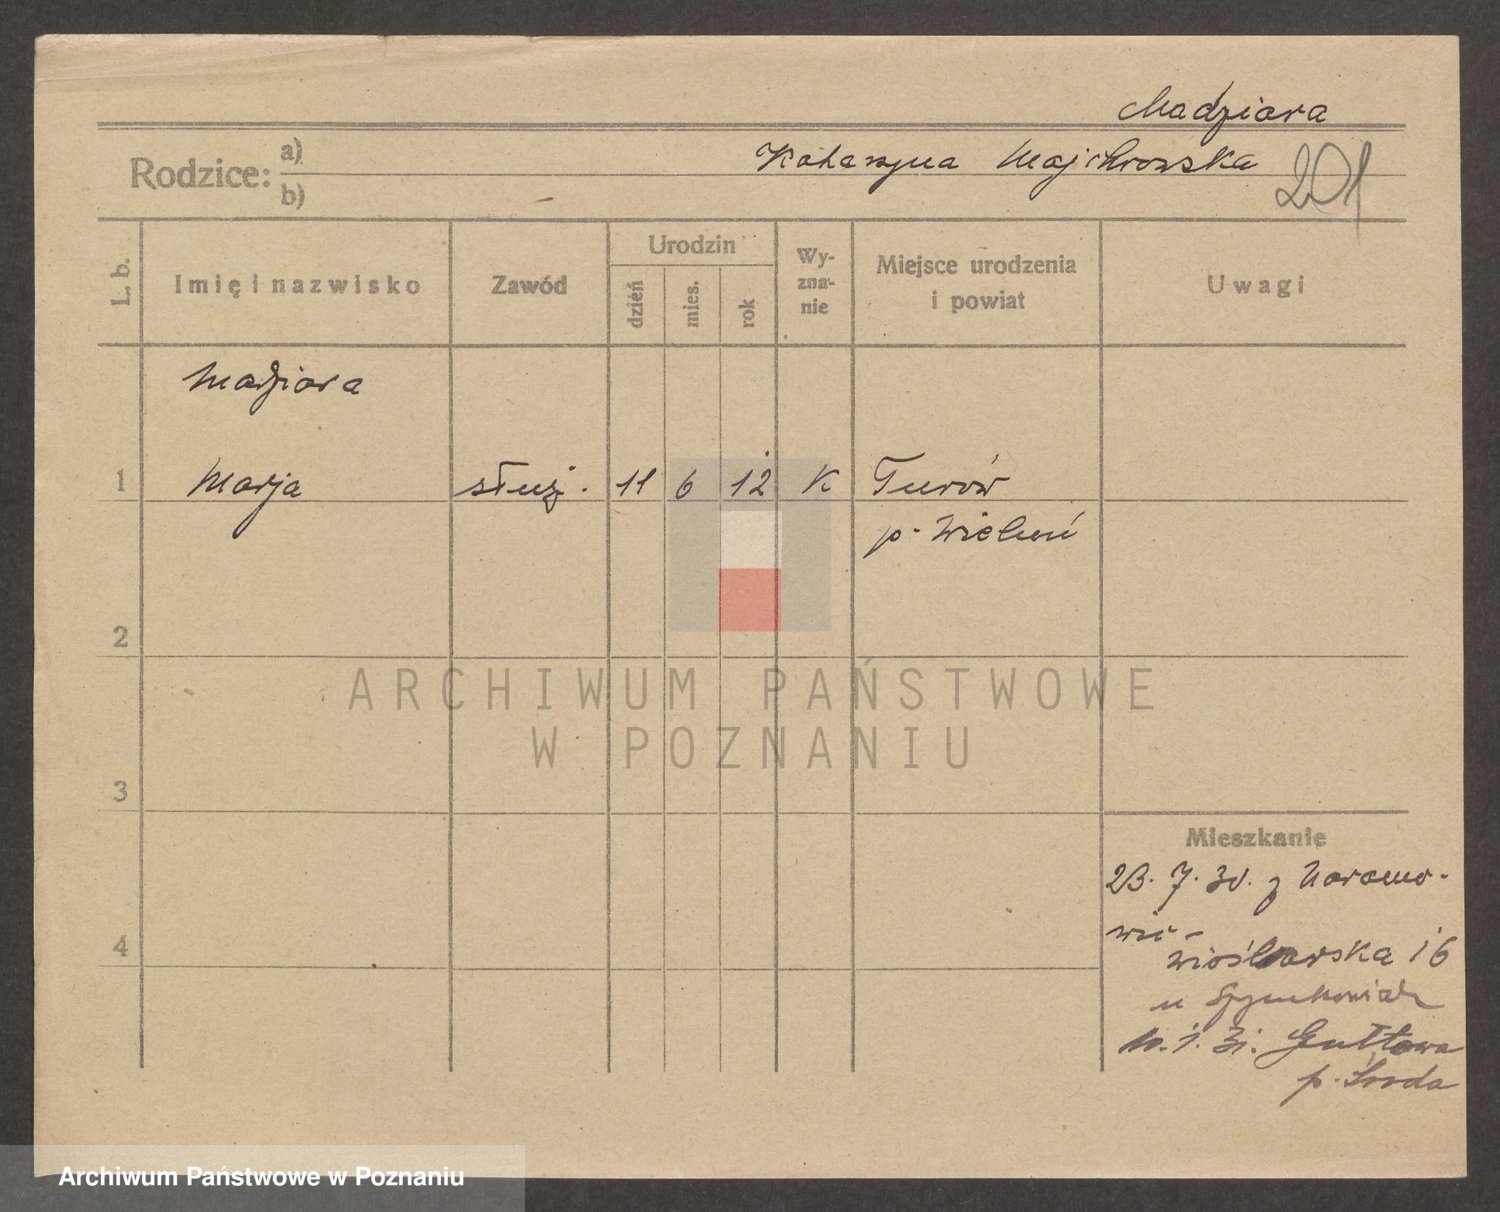 Madziara
Rodzice: a)
Katarzyna Majchrowska
b)
201
L. b.
Imię i nazwisko
Zawód
Urodzin
dzień
mies.
rok
Wy-
zna-
nie
Miejsce urodzenia
i powiat
Uwagi
Madziara
1 Marja służ. 11 6 12 K Turów
p. Wieluń
2
ARCHIWUM PAŃSTWOWE
W POZNANIU
3
Mieszkanie
23. 7. 30. z Naramo-
wic -
4
Wioślarska 16
u
10. 1. 31. Gułtowa
p. Środa
Archiwum Państwowe w Poznaniu